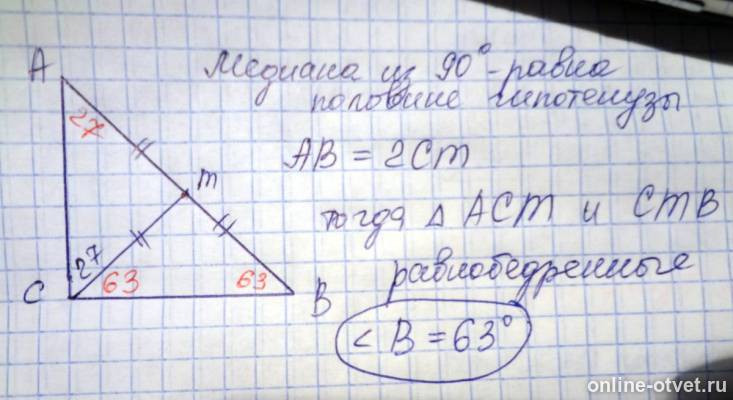 A
27
m
27
C
63
63
B
Медиана из 90°-равна
половине гипотенузы
AB = 2Cm
тогда Δ ACM и CMB
равнобедренные
< B = 63°
online-otvet.ru